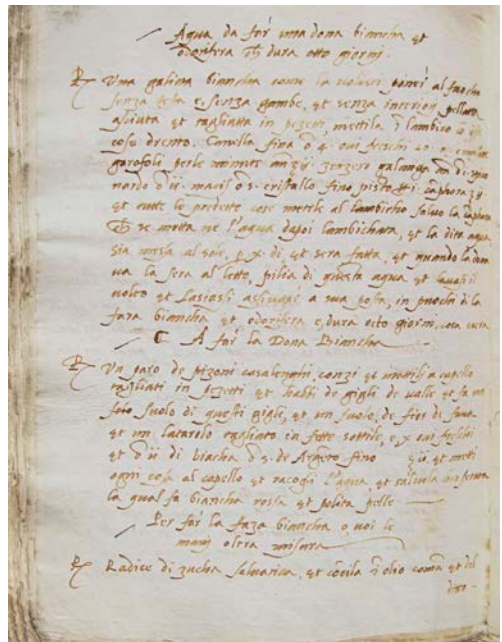 Aqua da far una dona biancha et
odorifera che dura otto giorni.
Una galina biancha come la volessi poner al fuocho
senza testa e, senza gambe, et senza interiori pellata
asciuta et tagliata in pezetti, mettila lambico
cose drento. Canella fina 4. oui freschi 20
garofoli perle minute zenzero galanga
nardo macis cristallo fino pisto caphora
et tutte le predette cose metele al lambicho saluo la caphora
che se metta ne l'aqua dapoi lambichata, et la dita aqua
sia messa al sol, p x di et sera fatta, et quando la dona
ua la sera al letto, pilia di questa aqua et lauasi il
uolto et lasiasli asciugar a sua posta, in puochi di la
faza biancha et odorifera e, dura octo giorni, cosa uera
A far la Dona Biancha
Un paro de pizoni casalenghi conzi et mettili a capello
tagliati in pezetti et habbi de gigli de ualle et fa un
solo suolo di questi gigli, et un suolo, de fior di faua
et un latarolo tagliato in fette sottile, e x oui freschi
et di biacha de Argento fino et metti
ogni cosa al capello et racogli l'aqua, et salcula
la qual fa biancha rossa et polita pelle
Per far la faza biancha o uoi le
mani oltra misura
Radice di zucha saluatica, et cocila olio et del
ditto -